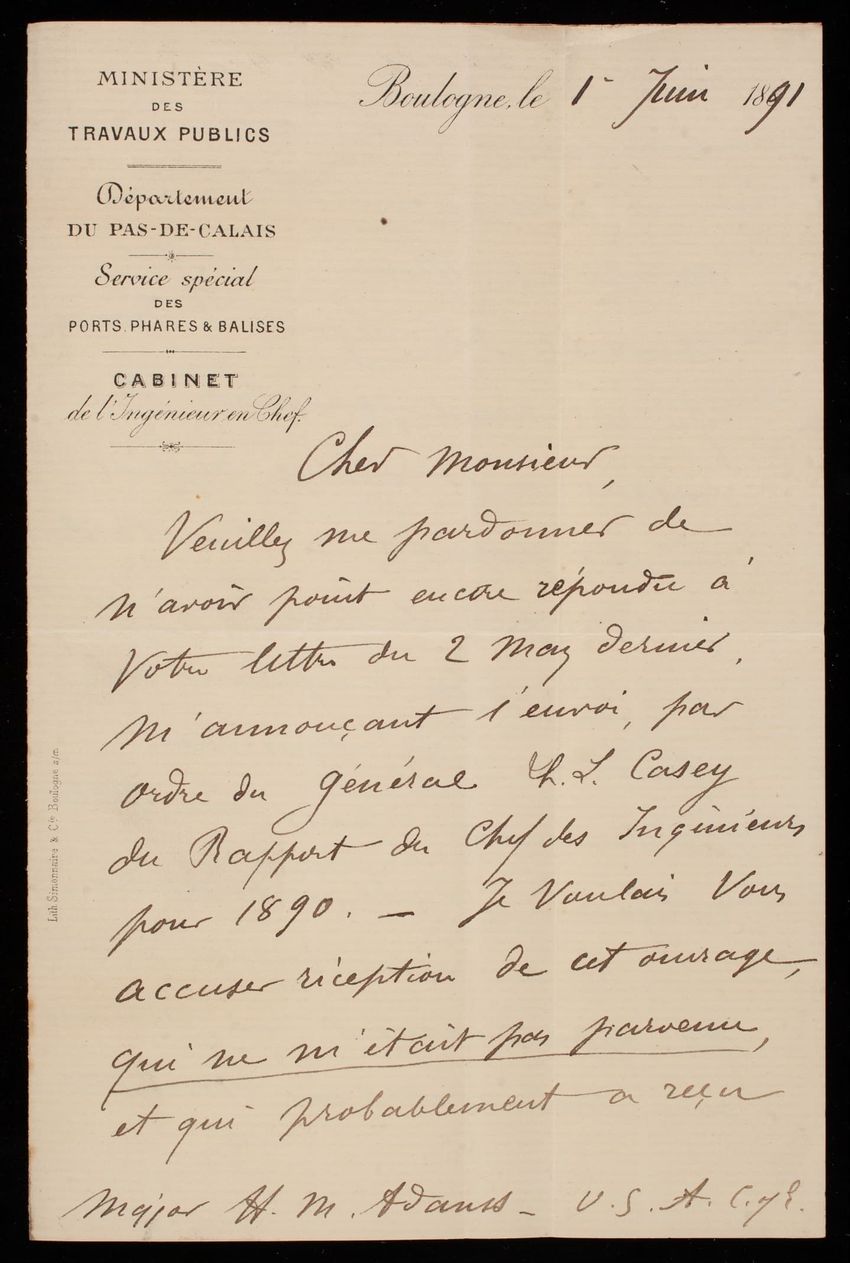 MINISTÈRE
DES
TRAVAUX PUBLICS
Département
DU PAS-DE-CALAIS
Service spécial
DES
PORTS, PHARES & BALISES
CABINET
de l'Ingénieur en Chef.
Boulogne, le 1er Juin 1891
Cher Monsieur,
Veuillez me pardonner de
n'avoir point encore répondu à
Votre lettre du 2 May dernier,
m'annonçant l'envoi, par
ordre du Général Th. L. Casey
du Rapport du Chef des Ingénieurs
pour 1890. — Je Voulais Vous
accuser réception de cet ouvrage,
qui ne m'était pas parvenu,
et qui probablement a reçu
Major H. M. Adams - U.S.A. C. of E.
Lith Simonnaire & Cie Boulogne s/m